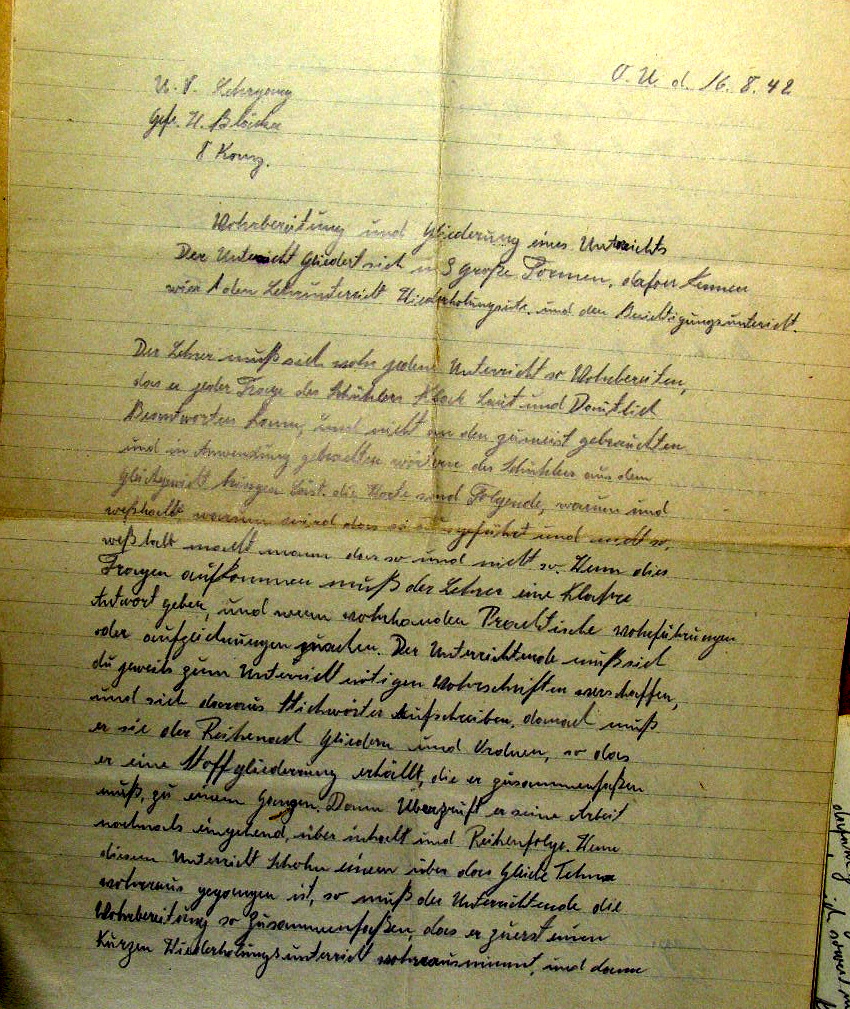 O. U. d. 16. 8. 42
U. F. Lehrgang
Gefr. H. Blöcker
8 Komp.
Wohrbereitung und Gliederung eines Unterrichts
Der Unterricht Gliedert sich in 3 große Formen, dafon kennen
wier 1 den Lehrunterricht Wiederholungsutr. und den Berichtigungsunterricht.
Der Lehrer muß sich wohr jeden Unterricht so Wohrbereiten,
das er jeder Frage des Schühlers Klack Laut und Deutlich
Beantworten kann, und nicht an den zumeist gebrauchten
und in Anwendung gebrachten wörtern der Schühler aus dem
Gleichgewicht bringen läst. die Worte sind Folgende, warum und
weßhalb, warum wird das so ausgeführt und nicht so,
weßhalb macht mann das so und nicht so. Wenn dies
Fragen aufkommen muß der Lehrer eine Klahre
Antwort geben, und wenn wohrhanden Practische wohrführungen
oder aufzeichnungen machen. Der Unterrichtende muß sich
du jeweils zum Unterricht nötigen wohrschriften verschaffen,
und sich daraus Stichwörter Aufschreiben, danach muß
er sie der Reihenach Gliedern und Ordnen, so das
er eine Stoffgliederung erhällt, die er zusammenfaßen
muß, zu einem Ganzen. Dann Überprüft er seine Arbeit
nochmals eingehend, über inhalt und Reihenfolge. Wenn
diesem Unterricht Schohn einem über das Gleiche Tehma
wohraus gegangen ist, so muß der Unterrichtende die
Wohrbereitung so Zusammenfaßen, das er zuerst einen
Kurzen Wiederholungsunterricht wohrausnimmt, und dann